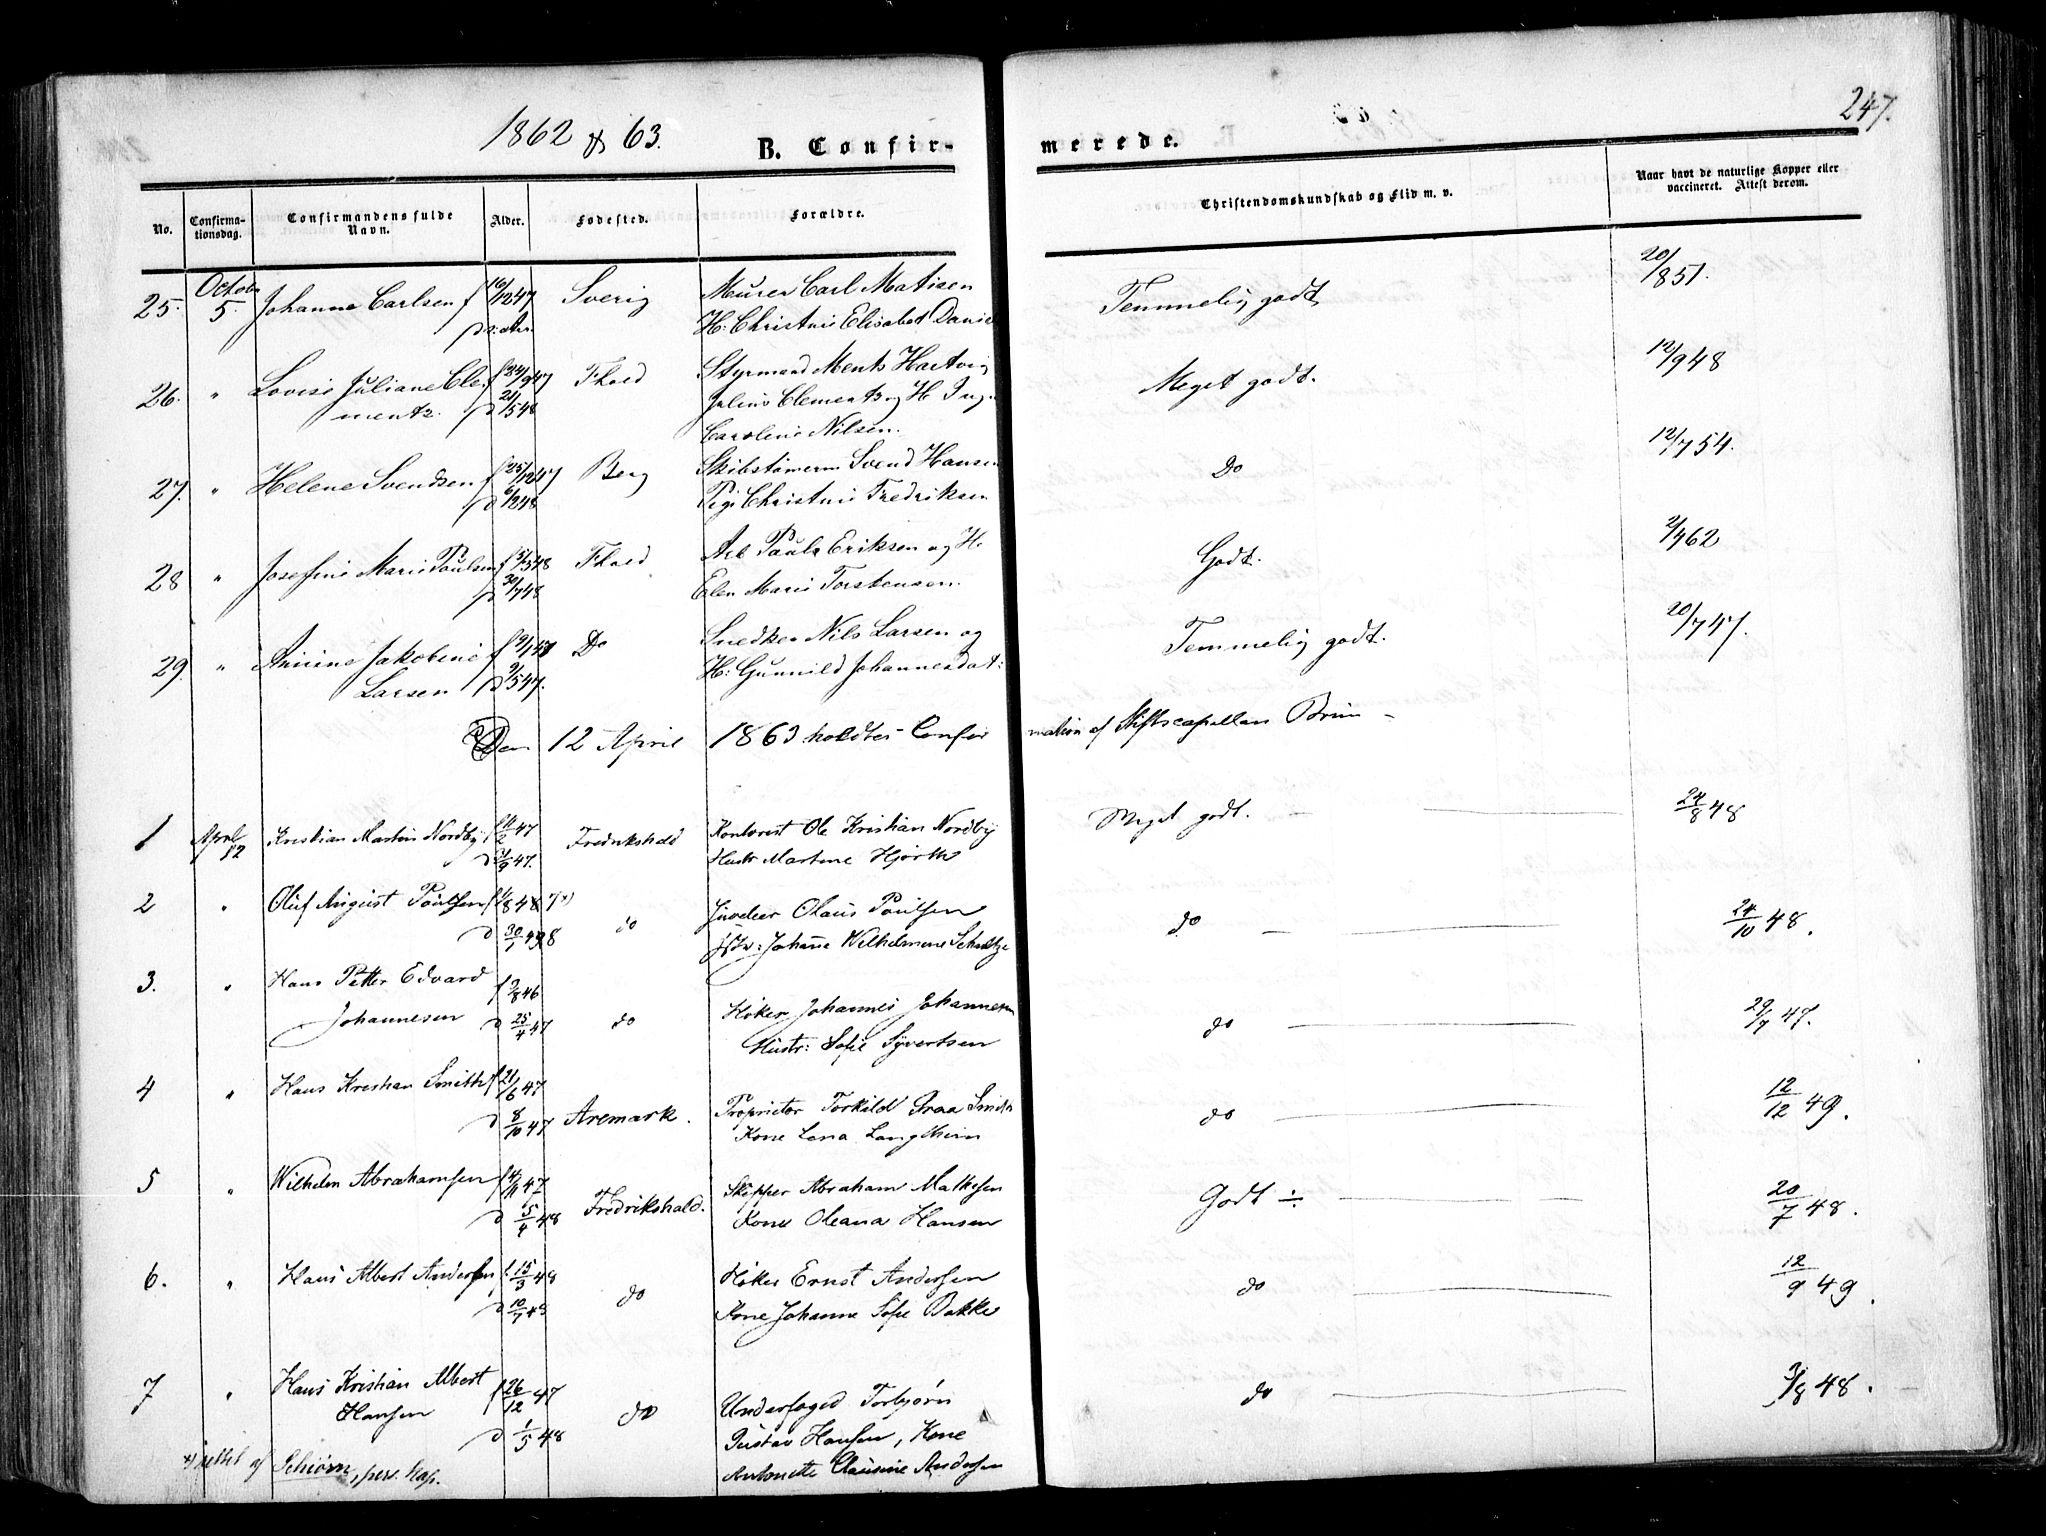 247.
1862 & 63.
B. Confir-
merede.
No.
Confirma-
tionsdag.
Confirmandens fulde
Navn.
Alder.
Fødested.
Forældre.
Christendomskundskab og Flid m. v.
Naar havt de naturlige Kopper eller
vaccineret. Attest derom.
25. Octobr 5. Johanne Carlsen f 16/12 47 Sverig Murer Carl Matisen Temmelig godt 20/8 51.
H: Christine Elisabet Daniel
26. " Lovise Juliane Cle- f 24/9 47 Fhald Styrmand Ments Hartvig Meget godt. 12/9 48
mentz. d 21/5 48 Julius Clements og H.
Caroline Nilsen.
27. " Helene Svendsen f 25/12 47 Berg Skibstömerm Svend Hansen Do 12/7 54.
d 6/2 48 Pige Christine Fredriksen
28 " Josefine Marie Poulsen f 5/3 48 Fhald Arb Pauls Eriksen og H: Godt. 2/4 62
d 30/7 48 Elen Marie Torstensen.
29. " Anine Jakobine f 9/1 47 Do Snedker Nils Larsen og Temmelig godt. 20/7 47.
Larsen d 9/5 47. H: Gunnild Johannesdat:
Den 12 April 1863 holdtes Confir mation af Stiftscapellan Brun -
1 April 12 Kristian Martin Nordby f 11/2 47 Fredrikshald Kontorist Ole Kristian Nordby Meget godt. 24/8 48
d 21/9 47. Hustr Martine Hjorth
2 " Oluf August Poulsen f 1/8 48 7 x) do Juveleer Olaus Poulsen do 24/10 48.
d 30/1 49 8 Hstr: Johanne Wilhelmine Schultze
3. " Hans Petter Edvard f 9/8 46
Johannesen d 25/4 47 do Høker Johannes Johannesen do 29/7 47.
Hustr: Sofie Syvertsen
4 " Hans Kristian Smith f 21/6 47 Aremark. Proprietær Torkild Graa Smith do 12/12 49.
d 8/10 47 Kone Lena Langtheim
5 " Wilhelm Abrahamsen f 4/11 47 Fredrikshald. Skipper Abraham Mathesen Godt ÷ 20/7 48.
d 15/4 48 Kone Oleana Hansen
6. " Hans Albert Andersen f. 15/3 48 do Høker Ernst Andersen do 12/9 49.
d 10/7 48 Kone Johanne Sofie Bakke
7 " Hans Kristian Albert f 26/12 47 do Underfoged Torbjørn do 3/8 48.
Hansen d 1/5 48 Gustav Hansen, Kone
x) rettet af Schiørn, pers. kap. Antonette Clausine Andersen